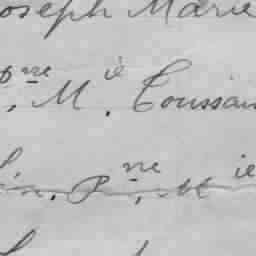 oseph Marie
pne, Mie. Toussain
Lin. Pne, Mie